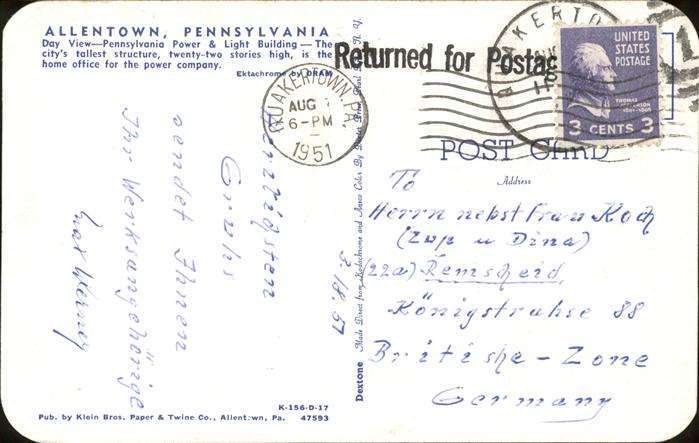 ALLENTOWN, PENNSYLVANIA
Day View—Pennsylvania Power & Light Building — The
city's tallest structure, twenty-two stories high, is the
home office for the power company.
Ektachrome by
Returned for Postag
QUAKERTOWN, PA.
AUG
6-PM
1951
UNITED
STATES
POSTAGE
THOMAS
3 CENTS 3
POST CARD
Address
To
Herrn nebst Frau Koch
(Zup u Dina)
(22a) Remscheid,
Königstrahse 88
Britishe-Zone
Germany
Herzligsten
Gruhs
sendet Ihnen
Ihr Werksangehörige
Max
3.18.51
Dextone Made Direct from Kodachrome and Ansco Color By
K-156-D-17
Pub. by Klein Bros. Paper & Twine Co., Allentown, Pa. 47593